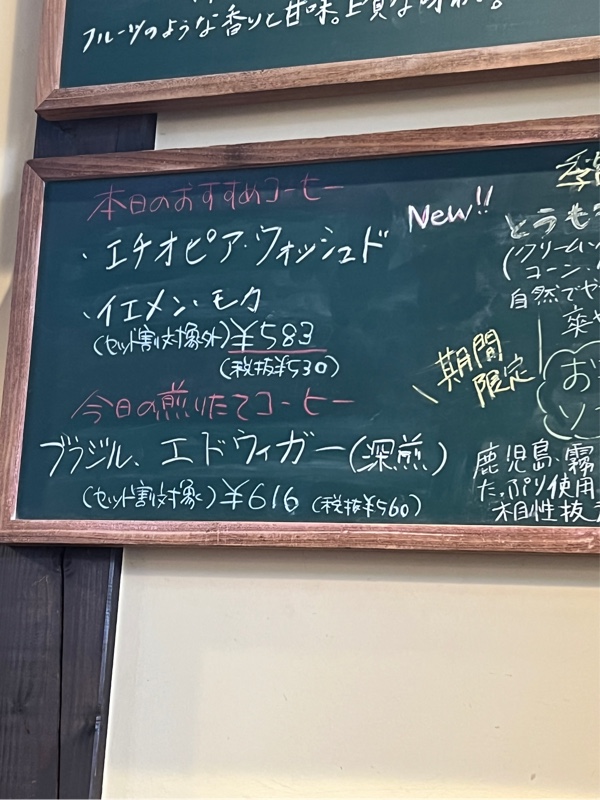 フルーツのような香りと甘味。上質な味わい。
本日のおすすめコーヒー
・エチオピア・ウォッシュド
New!!
・イエメン・モカ
(セット割対象外)¥583
(税抜¥530)
今日の煎りたてコーヒー
ブラジル、エドウィガー(深煎)
(セット割対象)¥616 (税抜¥560)
季
とうも
(クリーム
コーン
自然でや
期間
限定
お
ソ
鹿児島・霧
たっぷり使用
相性抜